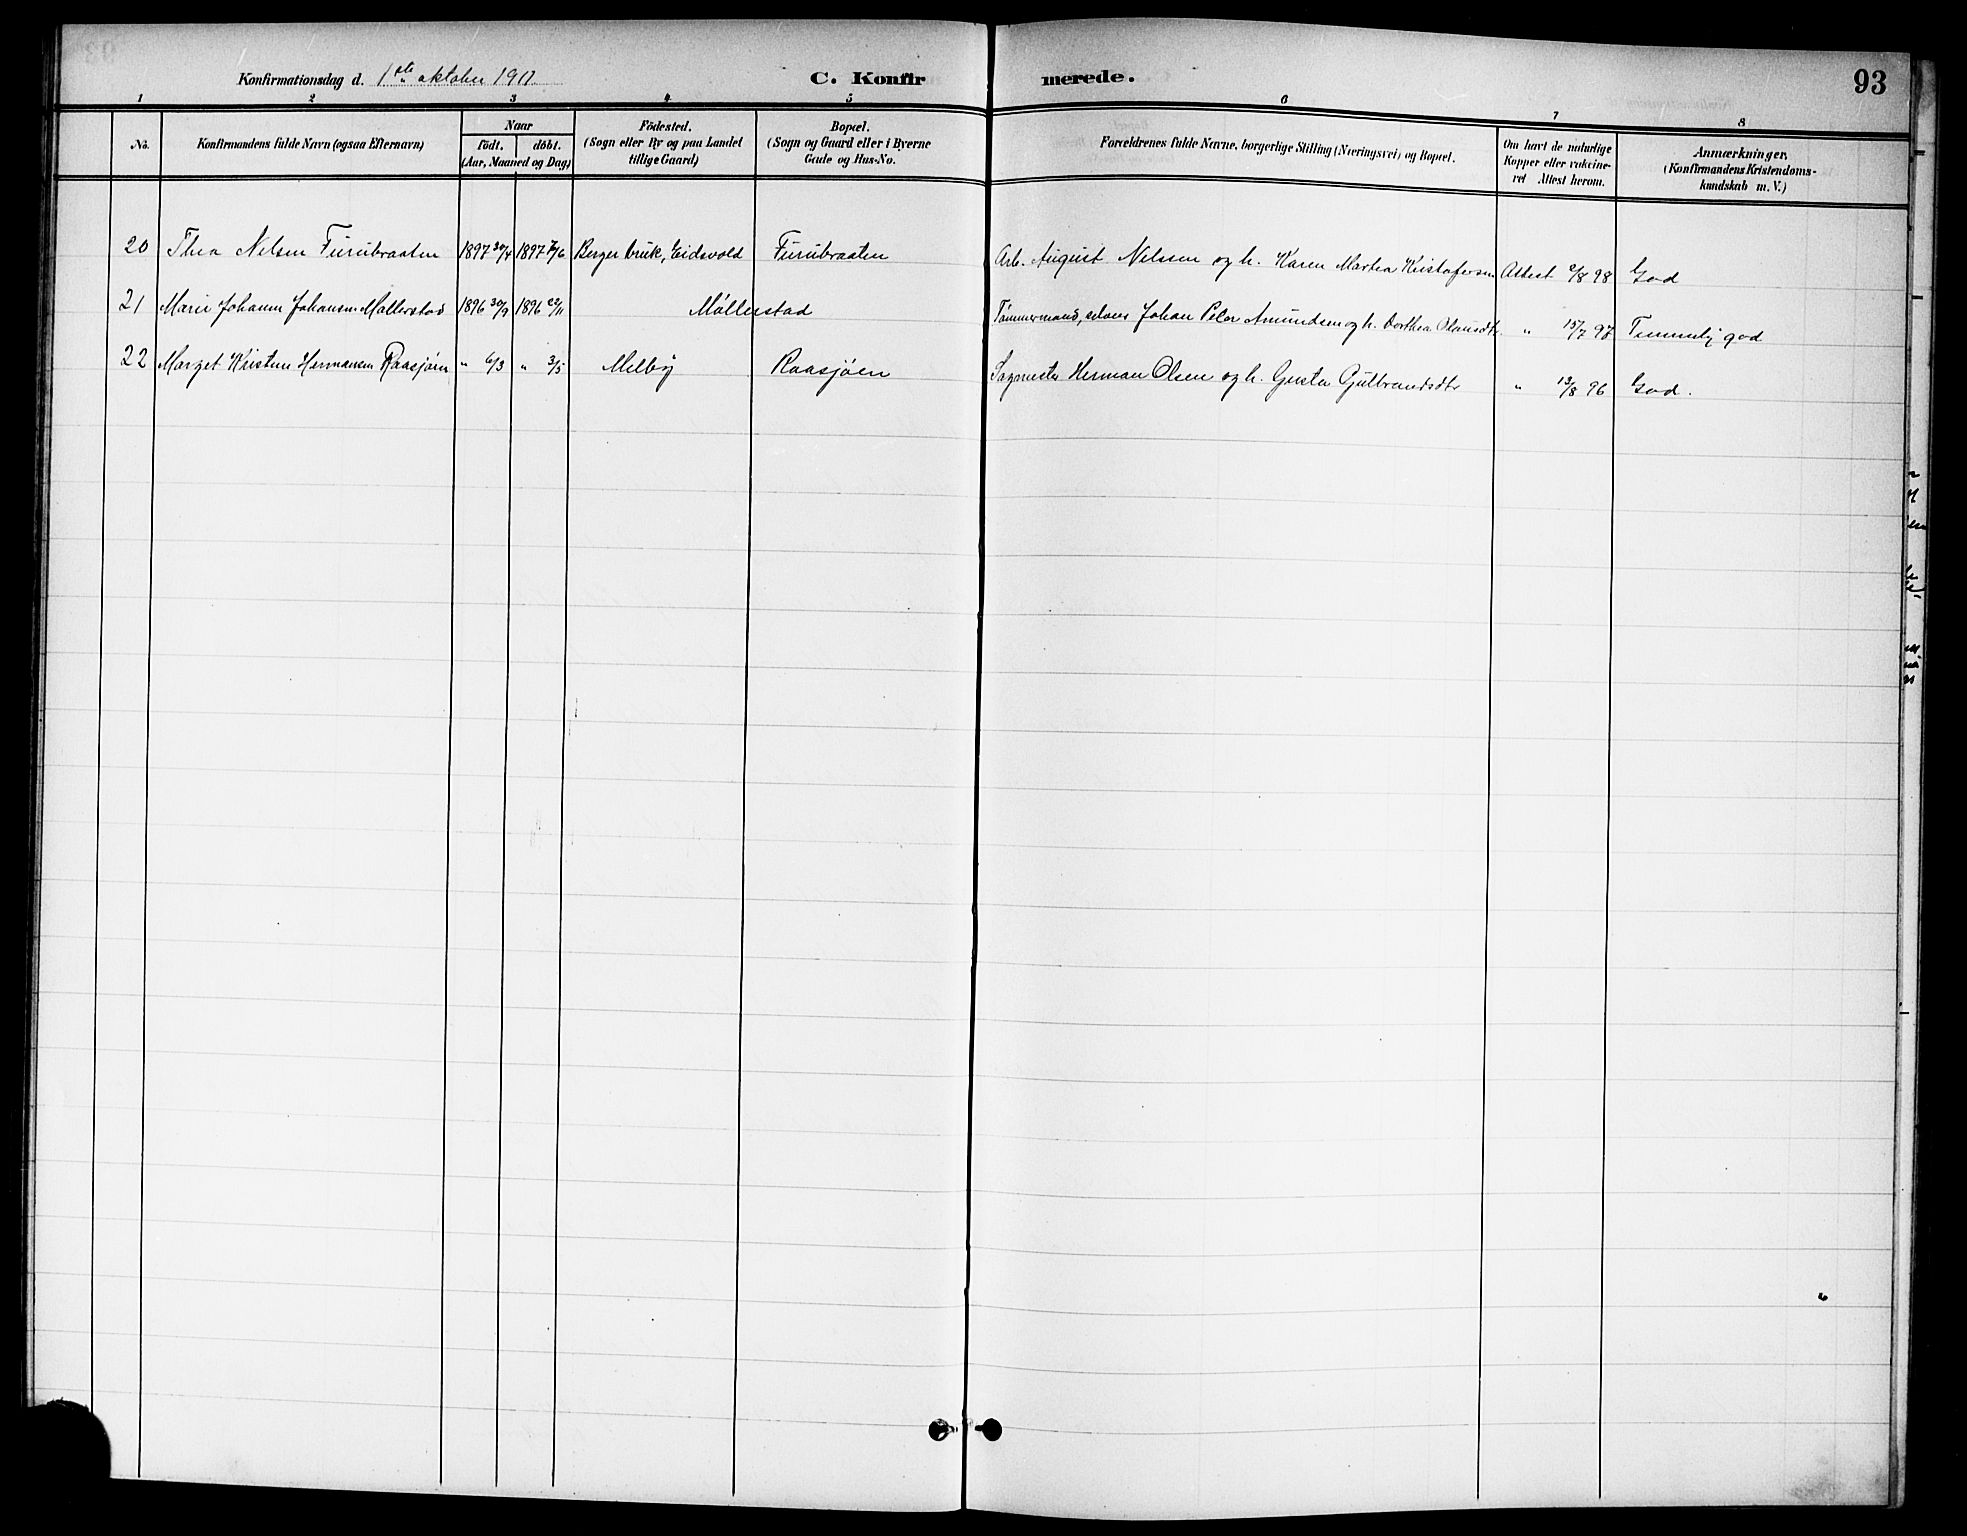 Konfirmationsdag d. 1ste oktober 1911. C. Konfirmerede. 93
1 2 3 4 5 6 7 8
No. Konfirmandens fulde Navn (ogsaa Efternavn) Naar født. døbt. (Aar, Maaned og Dag) Fødested. (Sogn eller By og paa Landet tillige Gaard) Bopæl. (Sogn og Gaard eller i Byerne Gade og Hus-No. Forældrenes fulde Navne, borgerlige Stilling (Næringsvei) og Bopæl. Om havt de naturlige Kopper eller vakcineret Attest herom. Anmærkninger. (Konfirmandens Kristendomskundskab m. V.)
20 Thea Nelsen Furubraaten 1897 30/4 1897 7/6 Berger bruk, Eidsvold Furubraaten Arb. August Nelssen og h. Karen Martea Kristofersen Attest 2/8 98 God
21 Marie Johanne Johansen Møllerstad 1896 30/9 1896 22/11 Møllerstad Tømmermand, selveier Johan Peter Amundsen og h. Dorthea Olausdtr. " 15/7 97 Temmelig god
22 Marget Kristine Hermansen Raasjøen " 6/3 " 3/5 Melby Raasjøen Sagmester Herman Olsen og h. Gusta Gulbrandsdtr " 13/8 96 God.